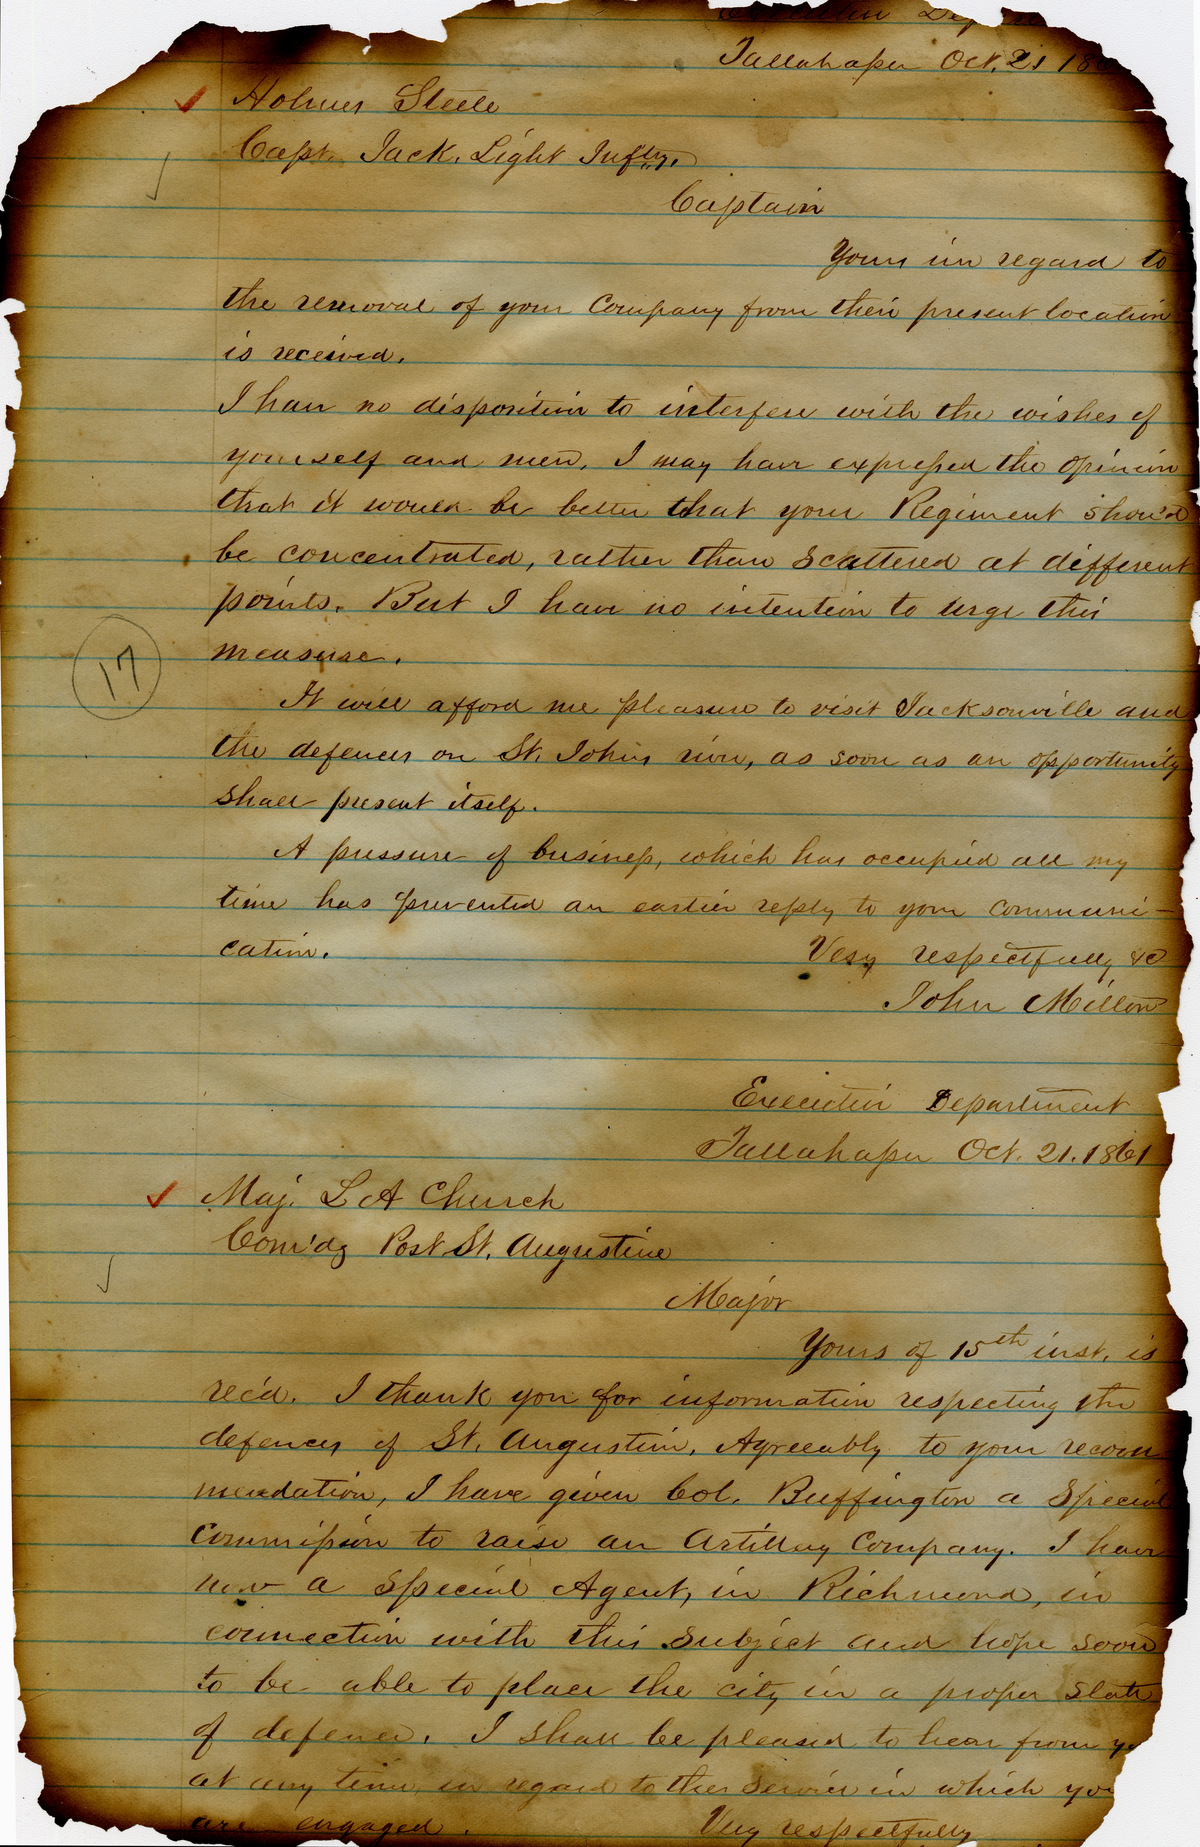 Executive Depart
Tallahassee Oct. 21 186
Holmes Steele
Capt. Jack. Light Inftry.
Captain
Yours in regard to
the removal of your Company from their present location
is received.
I have no disposition to interfere with the wishes of
yourself and men. I may have expressed the opinion
that it would be better that your Regiment should
be concentrated, rather than scattered at different
points. But I have no intention to urge this
measure.
It will afford me pleasure to visit Jacksonville and
the defences on St. Johns river, as soon as an opportunity
shall present itself.
A pressure of business, which has occupied all my
time has prevented an earlier reply to your communi-
cation. Very respectfully &c
John Milton
17
Executive Department
Tallahassee Oct. 21. 1861
Maj. L A Church
Com'dg Post St. Augustine
Major
Yours of 15th inst. is
rec'd. I thank you for information respecting the
defences of St. Augustine. Agreeably to your recom
mendation, I have given Col. Buffington a Special
Commission to raise an Artillery Company. I have
now a Special Agent, in Richmond, in
connection with this subject and hope soon
to be able to place the city in a proper state
of defence. I shall be pleased to hear from yo
at any time in regard to the service in which you
are engaged. Very respectfully